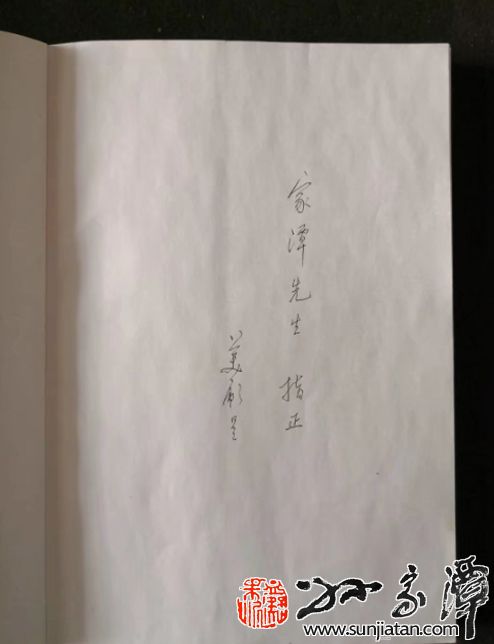 家潭先生 指正
美顧呈
孙家潭
www.sunjiatan.com